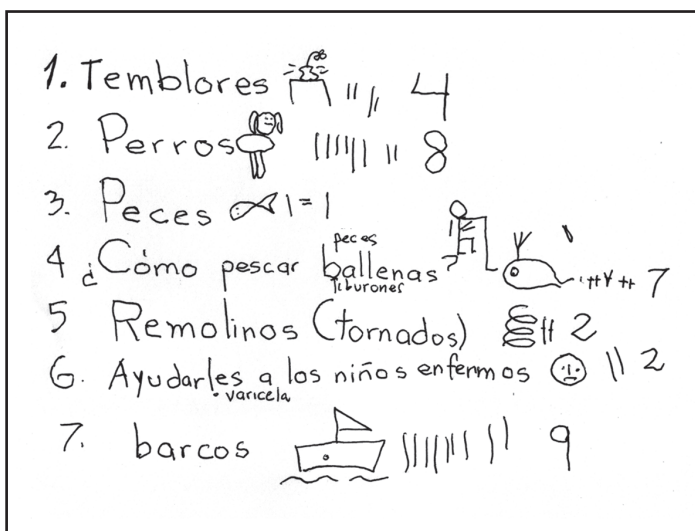 1. Temblores 4
2. Perros 8
3. Peces 1 = 1
peces
4 ¿Cómo pescar ballenas? 7
Tiburones
5 Remolinos (tornados) 2
6. Ayudarles a los niños enfermos 2
varicela
7. barcos 9